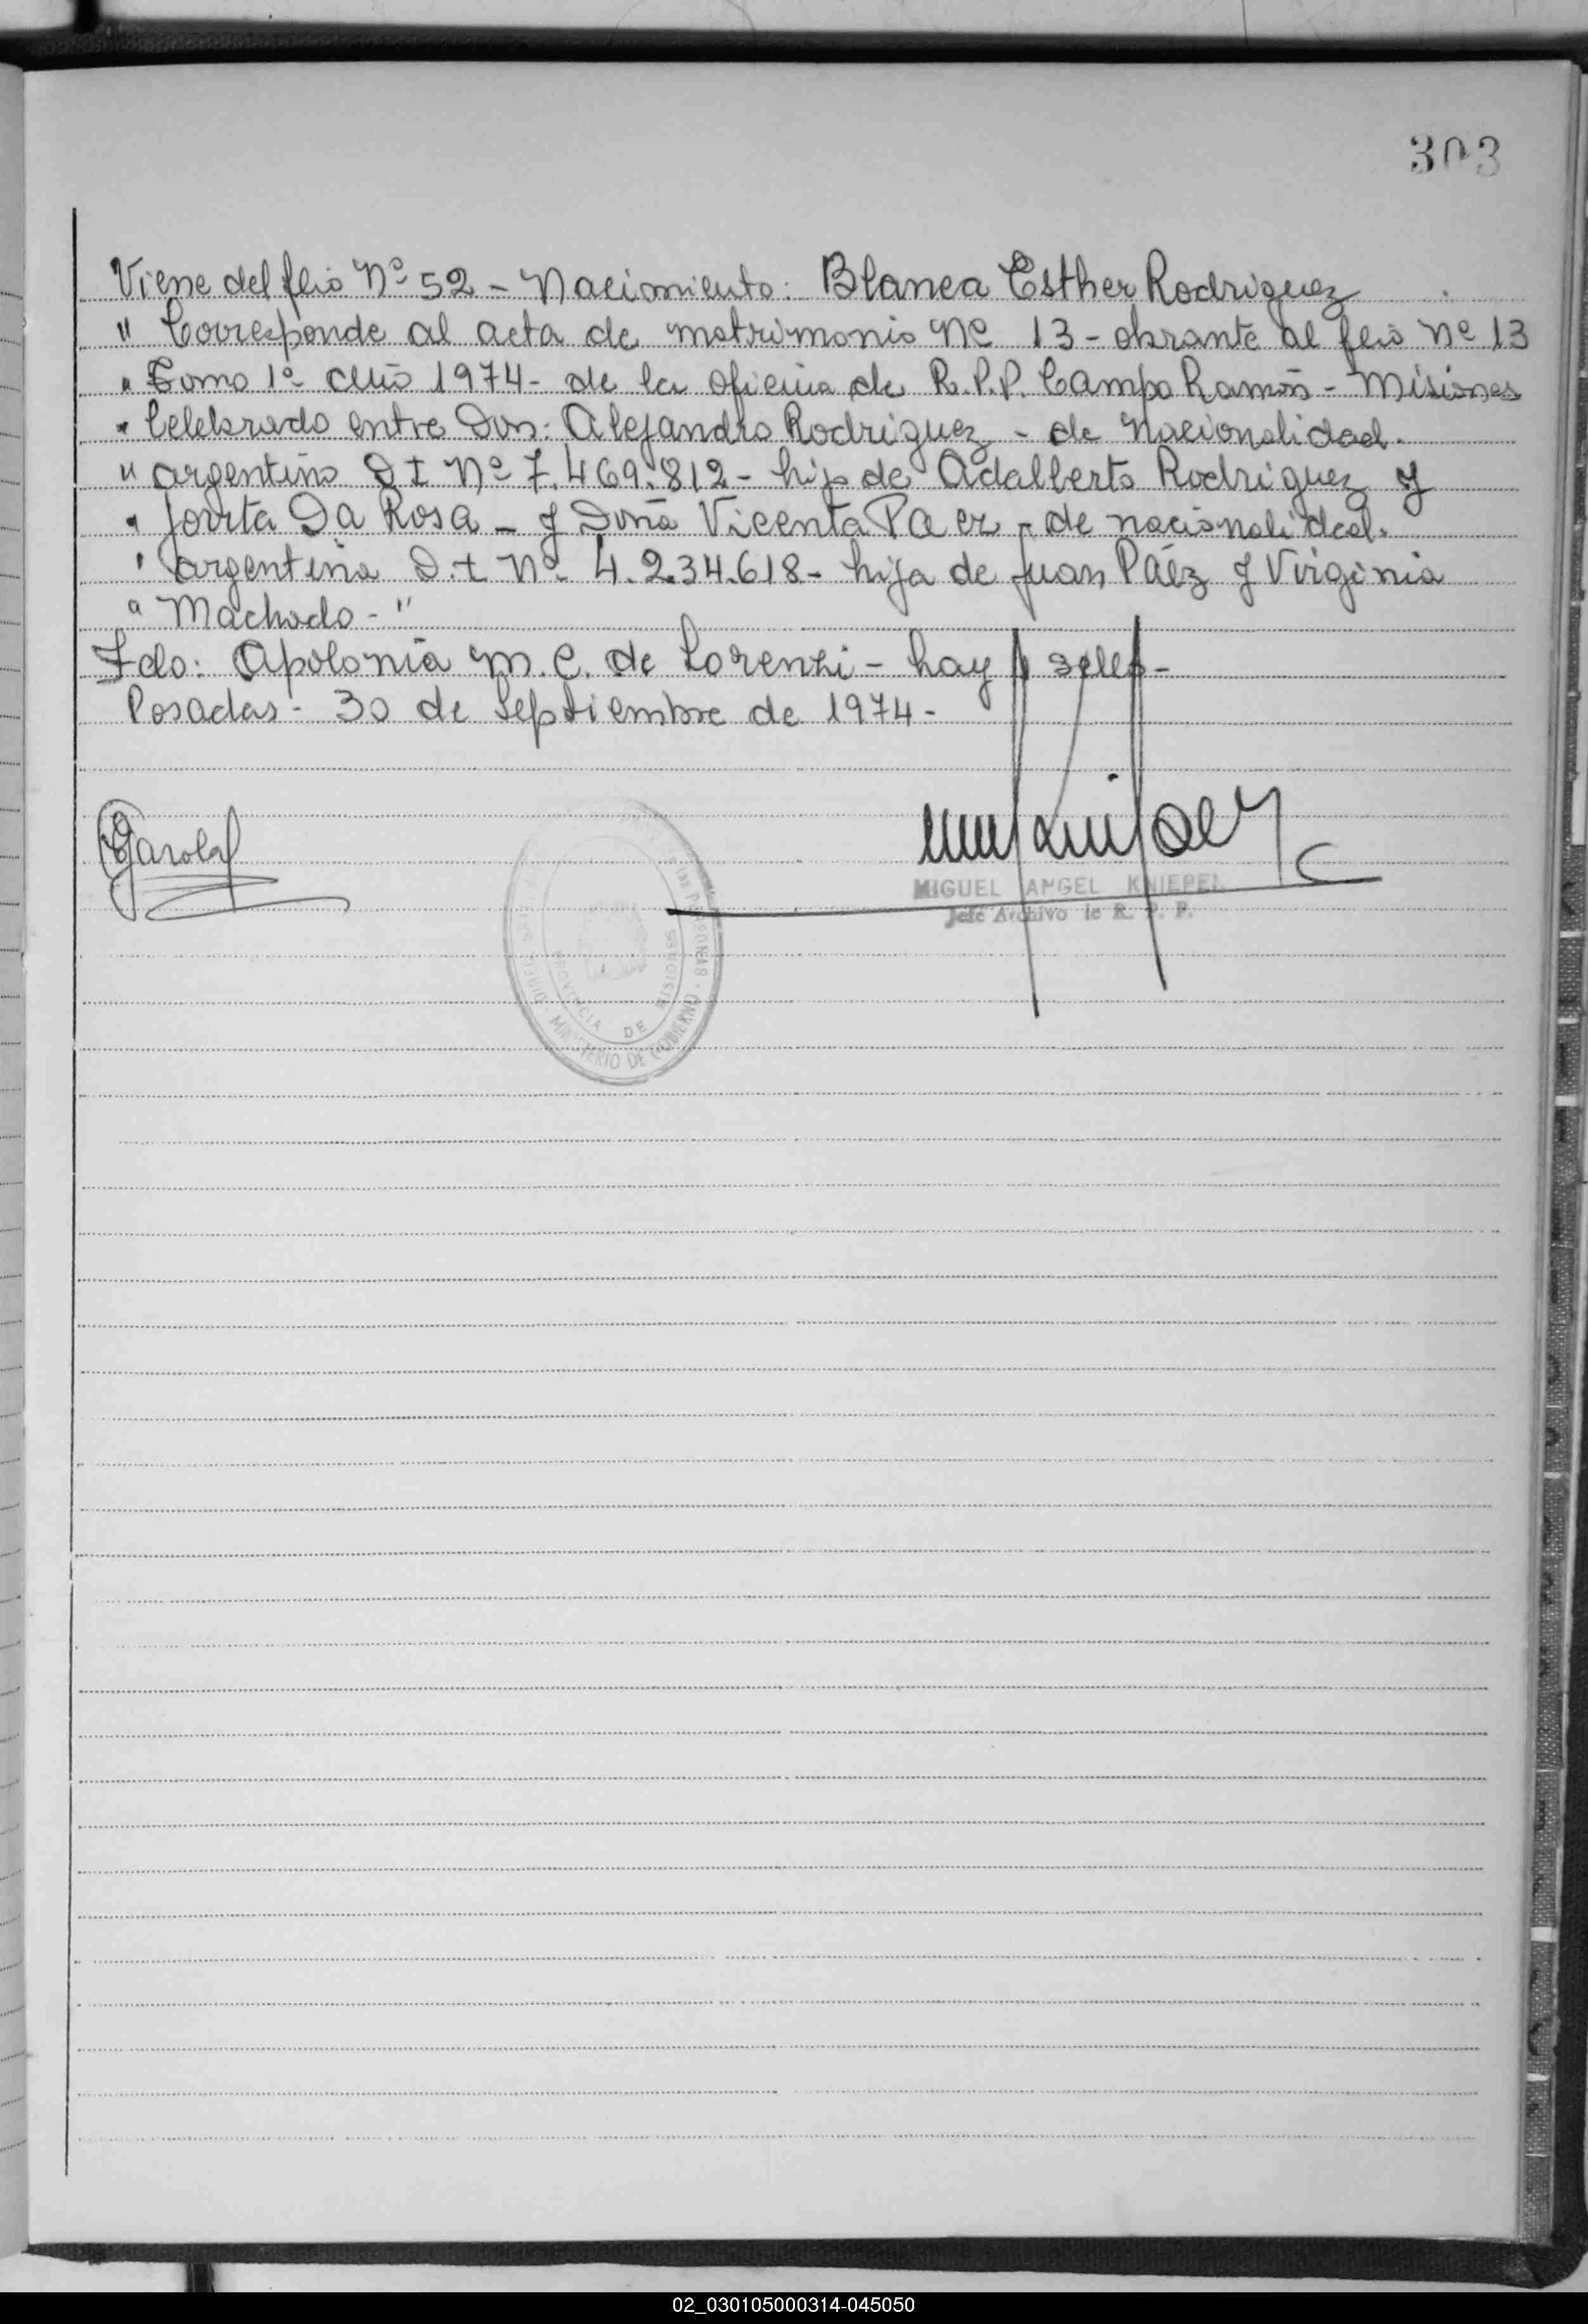 303
Viene del flio Nº 52 - Nacimiento: Blanca Esther Rodriguez
" Corresponde al acta de matrimonio Nº 13 - obrante al flio Nº 13
" Tomo 1º año 1974 - de la oficina de R.P.P. Campo Ramón - Misiones
" Celebrado entre Don: Alejandro Rodriguez - de nacionalidad.
" argentino D I Nº 7.469.812 - hijo de Adalberto Rodriguez y
" Jovita Da Rosa - y Doña Vicenta Paez - de nacionalidad.
" argentina D.I Nº 4.234.618 - hija de Juan Páez y Virginia
" Machado - "
Fdo: Apolonia M. C. de Lorenzi - hay sello -
Posadas - 30 de Septiembre de 1974 -
MIGUEL ANGEL KNIEPEL
Jefe Archivo de R. P. P.
PROVINCIA DE MISIONES
MINISTERIO DE GOBIERNO
02_030105000314-045050